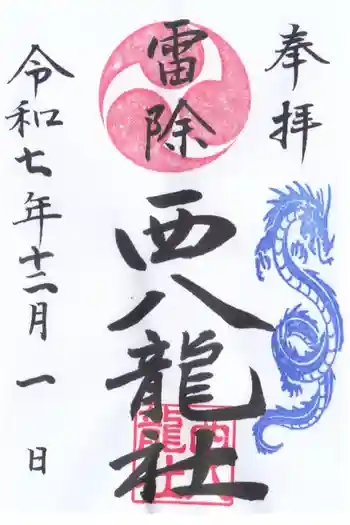 奉拝
雷除
西八龍社
令和七年十二月一日